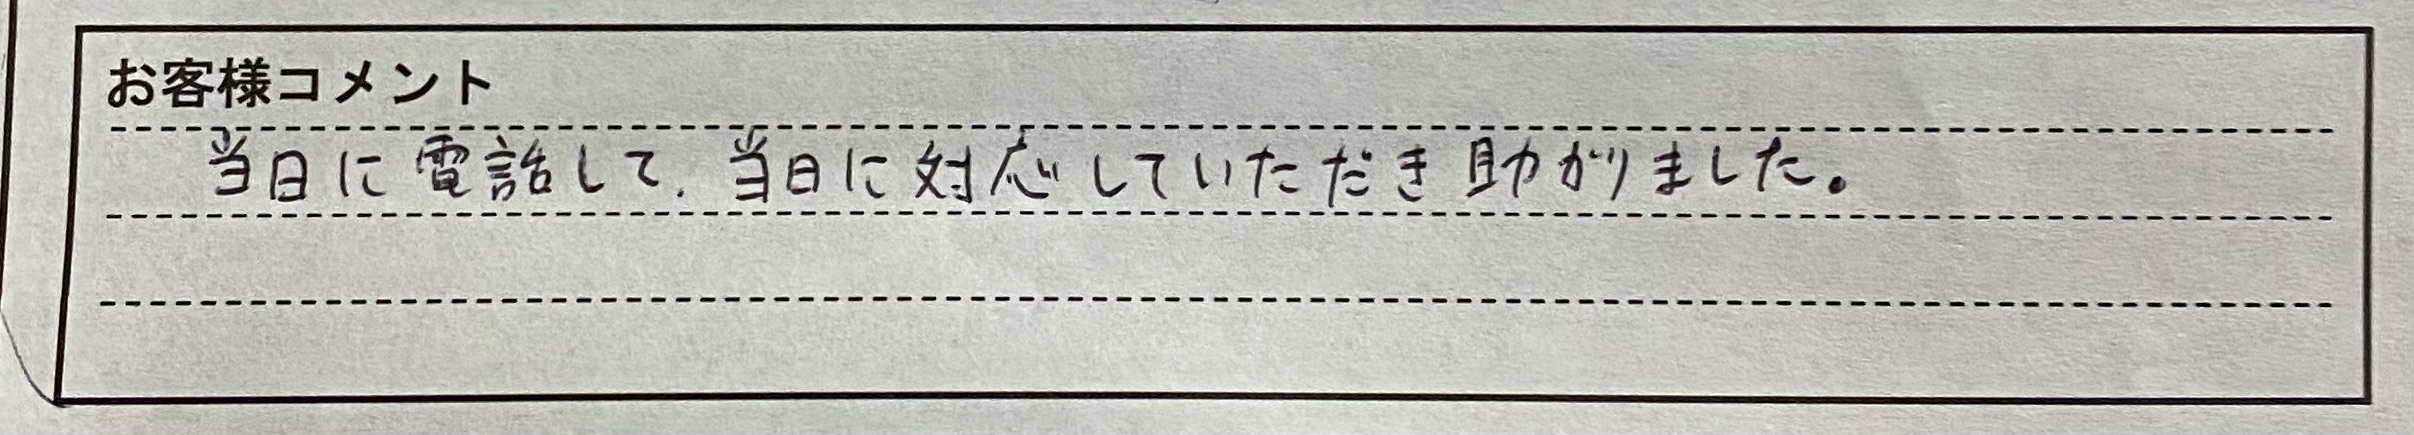 お客様コメント
当日に電話して、当日に対応していただき助かりました。